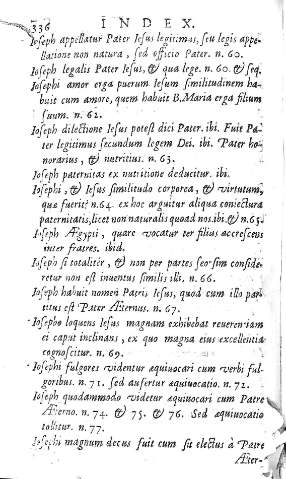 336 INDEX.
Ioseph appellatur Pater Iesus legitimus, seu legis appe-
llatione non natura, sed officio Pater. n. 60.
Ioseph legalis Pater Iesus, & qua lege. n. 60. & seq.
Iosephi amor erga puerum Iesum similitudinem ha-
buit cum amore, quem habuit B. Maria erga filium
suum. n. 62.
Ioseph dilectione Iesus potest dici Pater. ibi. Fuit Pa-
ter legitimus secundum legem Dei. ibi. Pater ho-
norarius, & nutritius. n. 63.
Ioseph paternitas ex nutritione deducitur. ibi.
Iosephi, & Iesus similitudo corporea, & virtutum,
quæ fuerit? n. 64. ex hoc arguitur aliqua coniectura
paternitatis, licet non naturalis quoad nos. ibi & n. 65.
Ioseph Ægypii, quare vocatur ter filius accrescens
inter fratres. ibid.
Ioseph si totaliter, & non per partes seorsim conside-
retur non est inuentus similis illi. n. 66.
Ioseph habuit nomen Patris Iesus, quod cum illo par-
titus est Pater Æternus. n. 67.
Iosepho loquens Iesus magnam exhibebat reuerentiam
ei caput inclinans, ex quo magna eius excellentia
cognoscitur. n. 69.
Iosephi fulgores videntur æquiuocari cum verbi ful-
goribus. n. 71. sed aufertur æquiuocatio. n. 72.
Ioseph quodammodo videtur æquiuocari cum Patre
Æterno. n. 74. & 75. & 76. Sed æquiuocatio
tollitur. n. 77.
Iosephi magnum decus fuit cum sit electus à Patre
Æter-